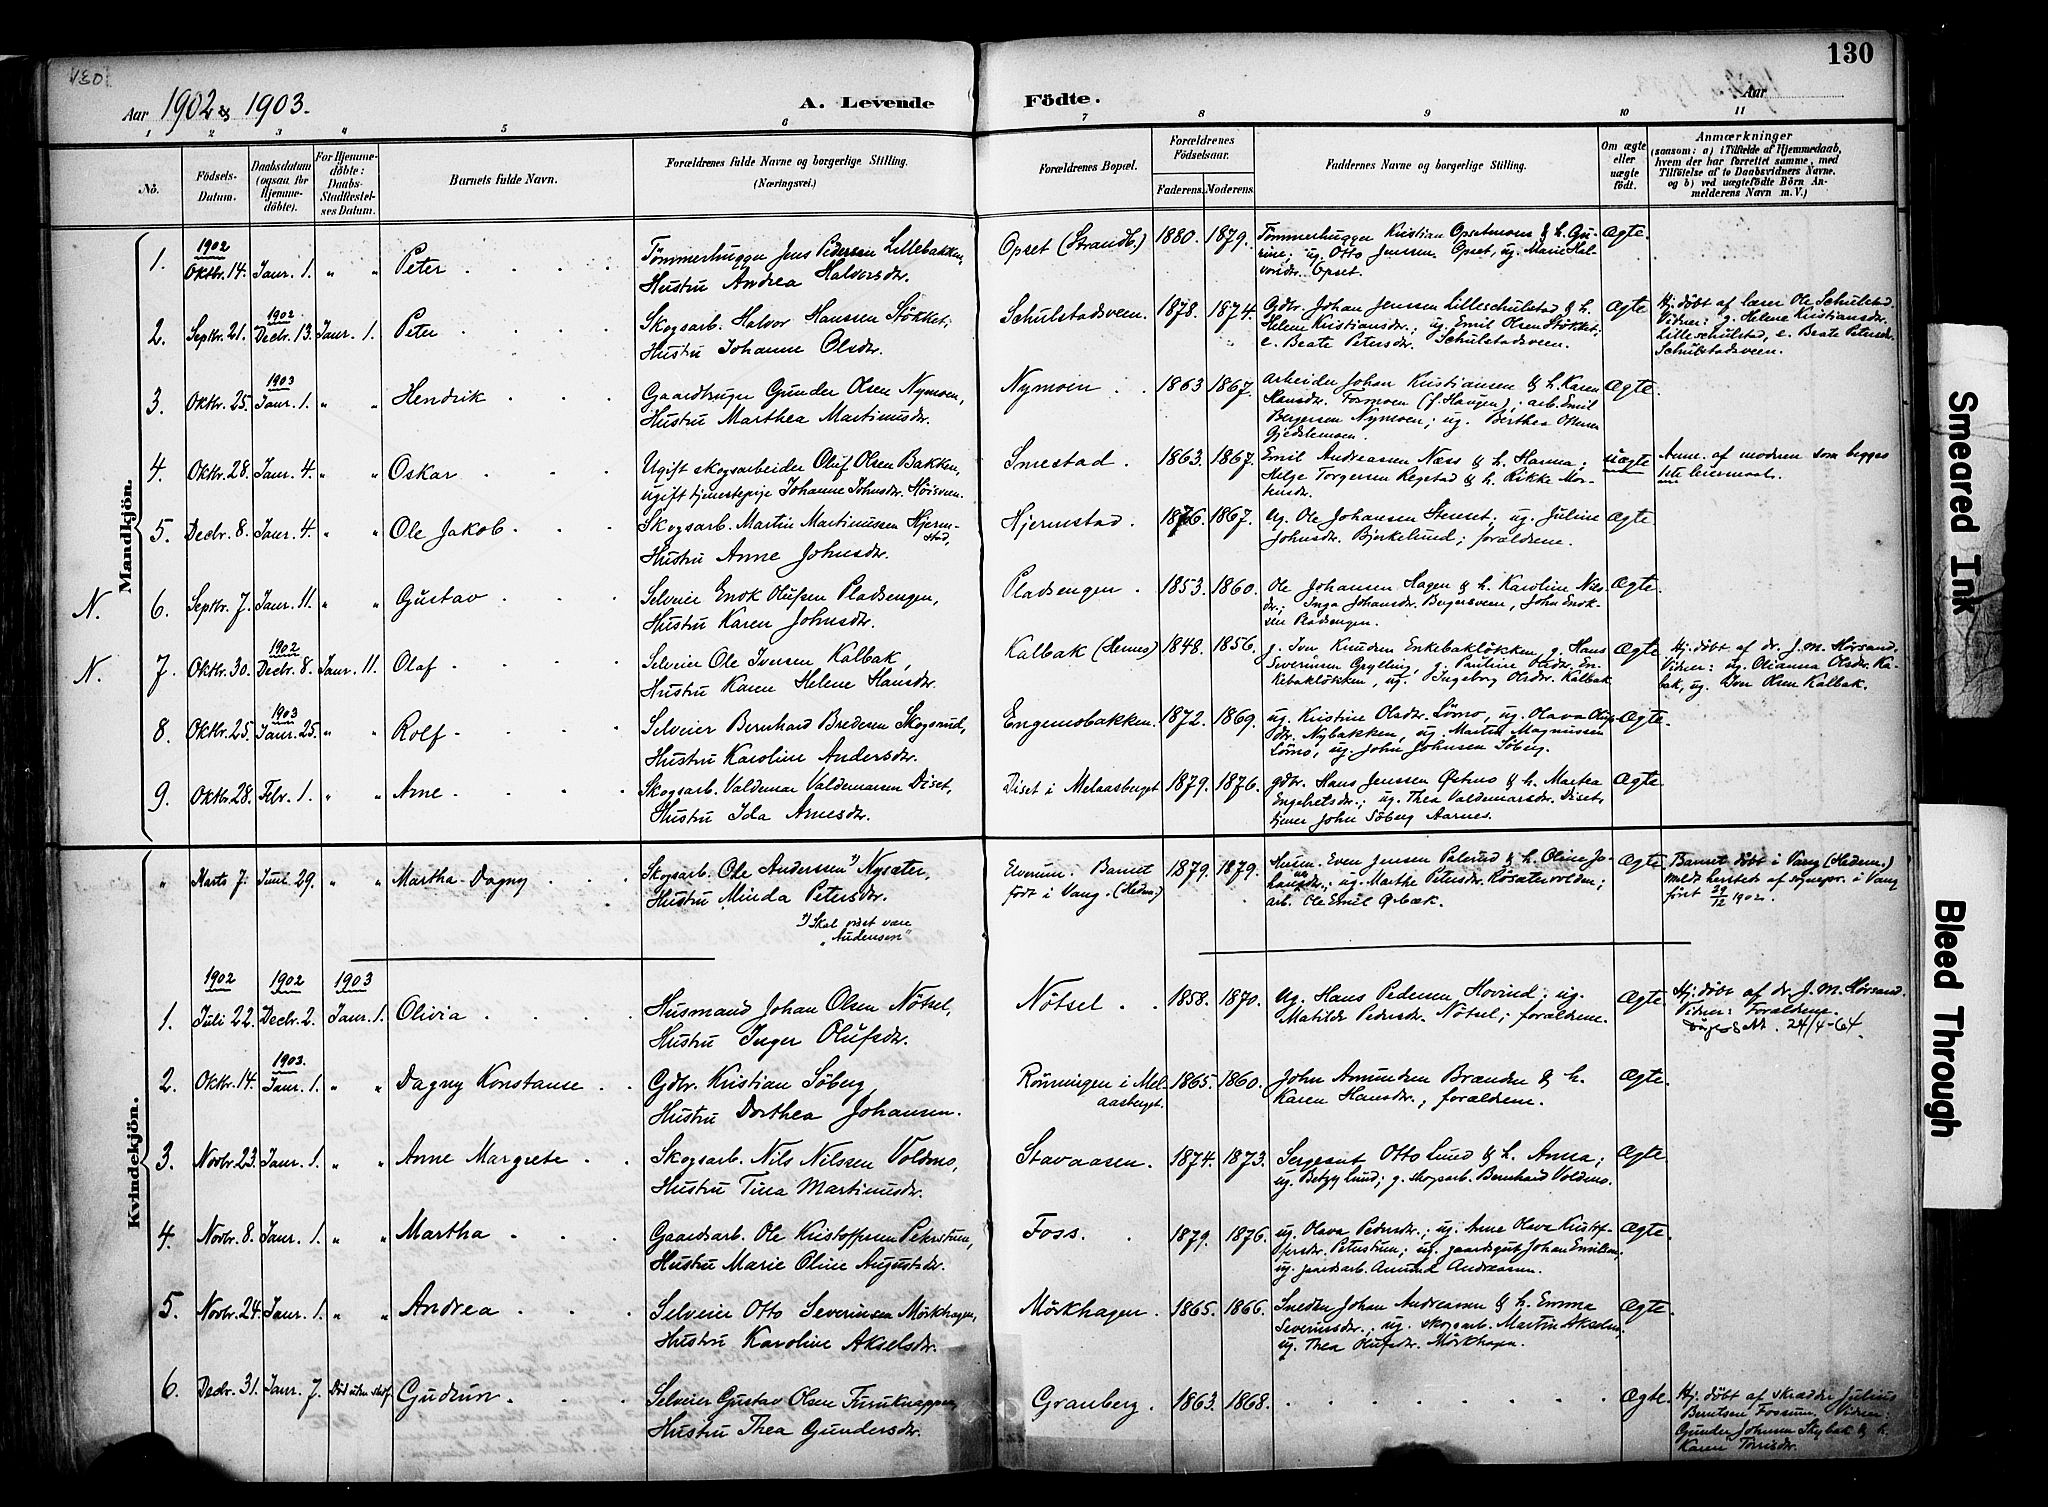 130
Aar 1902 & 1903. A. Levende Födte. Aar
1 2 3 4 5 6 7 8 9 10 11
No.
Födsels-Datum.
Daabsdatum (ogsaa for Hjemmedöbte).
For Hjemmedöbte: Daabs-Stadfæstelses Datum.
Barnets fulde Navn.
Forældrenes fulde Navne og borgerlige Stilling. (Næringsvei.)
Forældrenes Bopæl.
Forældrenes Födselsaar.
Faderens. Moderens.
Faddernes Navne og borgerlig Stilling.
Om ægte eller uægte födt.
Anmærkninger
(saasom: a) i Tilfælde af Hjemmedaab, hvem der har forrettet samme, med Tilföielse af to Daabsvidners Navne, og b) ved uægtefödte Börn Anmelderens Navn m. V.)
Mandkjön.
1. 1902 Oktbr. 14. Janr. 1. " " Peter
Tømmerhugger Jens Pedersen Lillebakken,
Hustru Andrea Halvorsdr.
Opset (Strandb.) 1880. 1879.
Tømmerhugger Kristian Opsetmoen & h. Gu-
rine; ug. Otto Jenssen Opset, ug. Marie Hal-
vorsdr. Opset.
Ægte.
2. Septbr. 21. 1902 Decbr. 13. Janr. 1. Peter
Skogsarb. Halvor Hanssen Støkket,
Hustru Johanne Olsdr.
Schulstadsveen. 1878. 1874.
Gdbr. Johan Jenssen Lilleschulstad & h.
Helene Kristiansdr.; ug. Emil Olsen Støkket;
e. Beate Petersdr. Schulstadsveen.
Ægte
Hj. døbt af lærer Ole Schulstad.
Vidner: g. Helene Kristiansdr.
Lilleschulstad, e. Beate Petersdr.
Schulstadsveen.
3. Oktbr. 25. 1903 Janr. 1. " " Hendrik
Gaardbruger Gunder Olsen Nymoen,
Hustru Marthea Martinusdr.
Nymoen 1863 1867.
Arbeider Johan Kristiansen & h. Karen
Hansdr. Tormoen (f. Haugen); arb. Emil
Bergersen Nymoen; ug. Berthea Olsen
Gjedstemoen.
Ægte.
4. Oktbr. 28. Janr. 4. " " Oskar
Ugift skogsarbeider Oluf Olsen Bakken,
ugift tjenestepige Johanne Johnsdr. Hörsveen.
Smestad. 1863. 1867.
Emil Andreassen Næss & h. Hanna;
Helge Torgersen Regstad & h. Rikke Mor-
tensdr.
uægte
Anm. af modren som begges
1ste leiermaal.
5. Decbr. 8. Janr. 4. " " Ole Jakob
Skogsarb. Martin Martinussen Hjerm-
stad,
Hustru Anne Johnsdr.
Hjermstad. 1876. 1867.
Ug. Ole Johansen Stenset; ug. Juline
Johnsdr. Bjerkelund; forældrene.
Ægte
N. 6. Septbr. 7. Janr. 11. " " Gustav
Selveier Enok Olufsen Pladsengen,
Hustru Karen Johnsdr.
Pladsengen 1853. 1860.
Ole Johansen Hagen & h. Karoline Nils-
dr.; Inga Johansdr. Bergersveen, John Enok-
sen Pladsengen.
Ægte.
N. 7. Oktbr. 30. 1902 Decbr. 8. Janr. 11. Olaf
Selveier Ole Iversen Kalbak,
Hustru Karen Helene Hansdr.
Kalbak (Hernes) 1848. 1856.
g. Iver Knudsen Enkebakløkken, g. Hans
Severinsen Grylling, g. Pauline Olsdr. En-
kebakløkken, ug. Ingeborg Olsdr. Kalbak
Ægte
Hj. døbt af dr. J. M. Hørsand.
Vidner: ug. Olianna Olsdr. Ka-
bak, ug. Iver Olsen Kalbak.
8. Oktbr. 25. 1903 Janr. 25. " " Rolf
Selveier Bernhard Bredesen Skogsrud,
Hustru Karoline Andersdr.
Engemobakken. 1872. 1869.
ug. Kristine Olsdr. Lömo, ug. Olava Olufs-
dr. Nybakken, ug. Martin Magnussen
Lömo, ug. John Johnsen Söberg.
Ægte.
9. Oktbr. 28. Febr. 1. " " Arne
Skogsarb. Valdemar Valdemarsen Diset,
Hustru Ida Arnesdr.
Diset i Melaasberget 1879. 1876.
Gdbr. Hans Jenssen Østmo & h. Martea
Engebretsdr.; ug. Thea Valdemarsdr. Diset,
tjener John Söberg Aarnes.
Ægte
Kvindekjön.
" Marts 7. Juni 29. " " Martha Dagny
Skogsarb. Ole Anderssen 1) Nysæter,
Hustru Minda Petersdr.
1) Skal vist være
"Audensen"
Elverum. Barnet
født i Vang. (Hedm.)
1879. 1879.
Husm. Even Jensen Palerud & h. Oline Jo-
hansdr.; ug. Marthe Petersdr. Røsætervolden;
arb. Ole Emil Qvbæk.
Ægte
Barnet døbt i Vang (Hedem.)
meldt hersteds af sognepr. i Vang
först 29/12 1902.
1. 1902 Juli 22. 1902 Decbr. 2. 1903 Janr. 1. Olivia
Husmand Johan Olsen Nötsel,
Hustru Inger Olufsdr.
Nötsel 1858. 1870.
Ug. Hans Pedersen Hovind; ug.
Matilde Pedersdr. Nötsel; forældrene.
Ægte
Hj. døbt af dr. J. M. Hørsand.
Vidner: Forældrene.
24/4-64
2. Oktbr. 14. 1903. Janr. 1. " " Dagny Konstanse
Gdbr. Kristian Söberg,
Hustru Dorthea Johansen.
Rönningen i Mel-
aasberget.
1865. 1860.
John Amundsen Brænden & h.
Karen Hansdr.; forældrene.
Ægte.
3. Novbr. 23. Janr. 1. " " Anne Margrete
Skogsarb. Nils Nilssen Voldmo,
Hustru Tina Martinusdr.
Stavaasen. 1874. 1873.
Sergeant Otto Lund & h. Anna;
ug. Betzy Lund; g. skogsarb. Bernhard Voldmo.
Ægte
4. Novbr. 8. Janr. 1. " " Martha
Gaardsarb. Ole Kristoffersen Peterstuen,
Hustru Marie Oline Augustsdr.
Foss. 1879. 1876.
ug. Olava Pedersdr.; ug. Arne Olava Kristof-
fersdr. Peterstuen; ug. gaardsgut Johan Emilsen;
ug. gaardsarb. Amund Andreassen.
Ægte
5. Novbr. 24. Janr. 1. " " Andrea
Selveier Otto Severinsen Mörkhagen,
Hustru Karoline Akselsdr.
Mörkhagen. 1865. 1866.
Snedker Johan Andreassen & h. Emma
Severinsdr.; ug. skogsarb. Martin Akselsen;
ug. Thea Olufsdr. Mörkhagen.
Ægte
6. Decbr. 31. Janr. 7. Död uden stadf. Gudrun
Selveier Gustav Olsen Furuknappen,
Hustru Thea Gundersdr.
Granberg. 1863. 1868.
Ægte.
Hj. døbt af skrædder Julius
Berntsen Fossum. Vidner:
Gunder Johnsen Skybak & h.
Karen Torrisdr.
Smeared Ink
Bleed Through